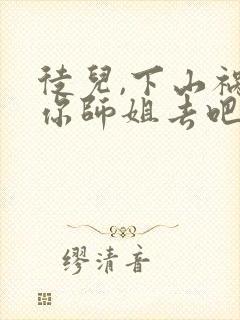 徒兒,下山禍
你師姐去吧
繆清音